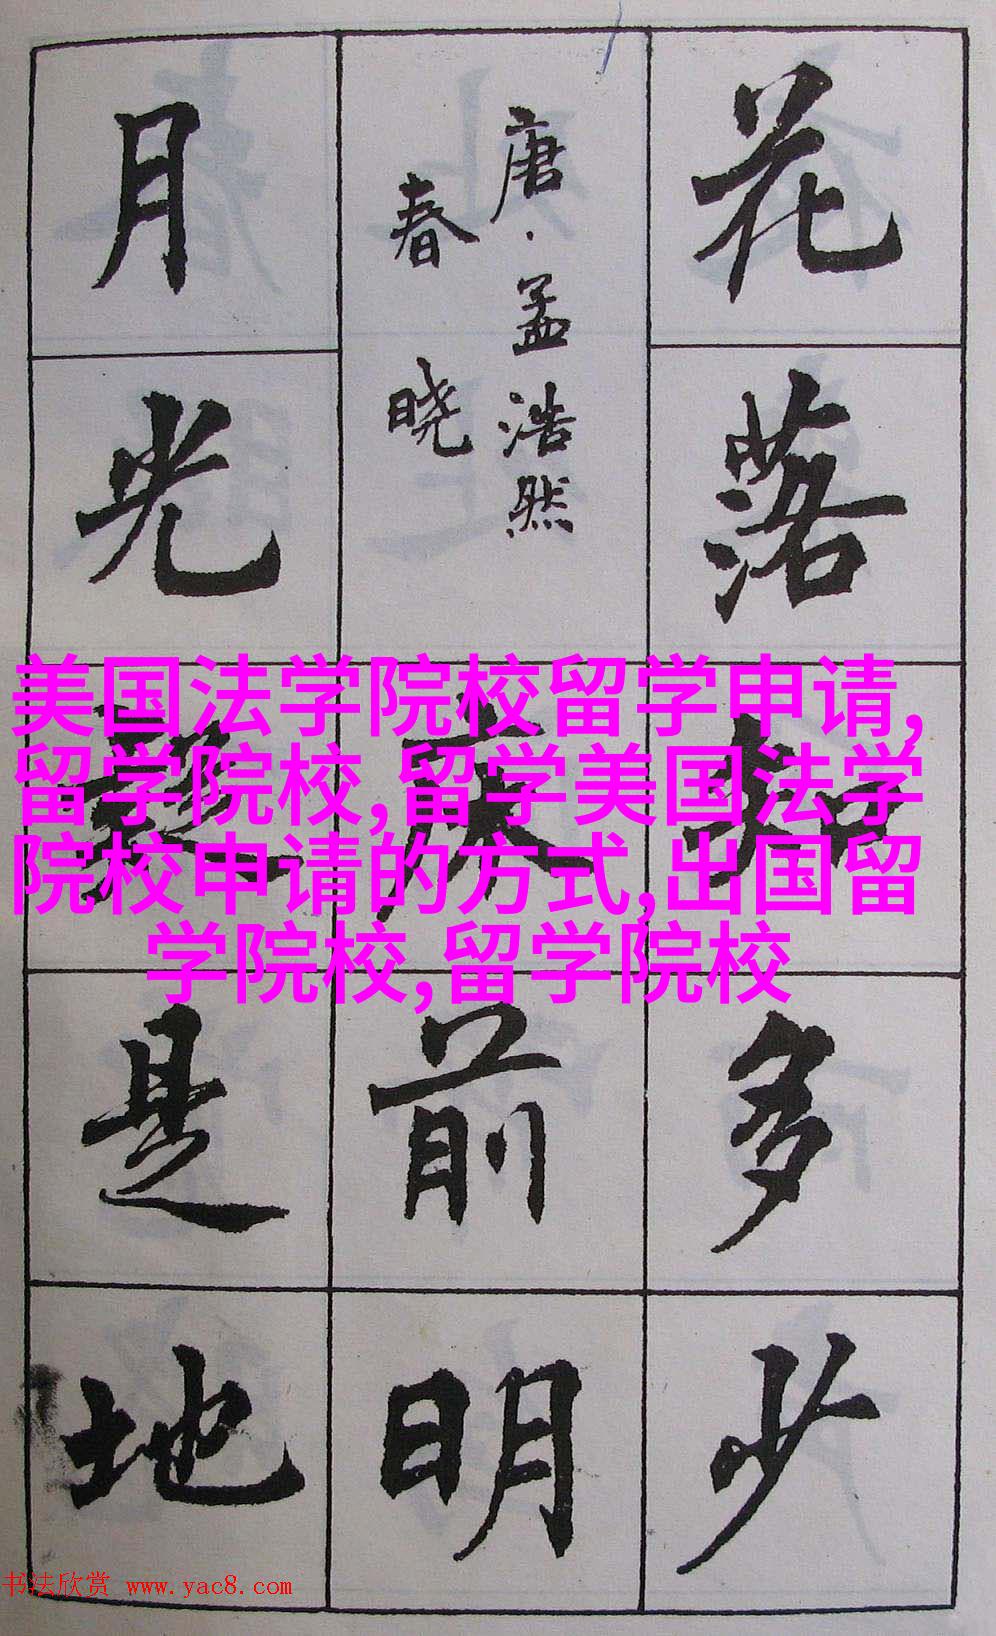 花落知多少
唐·孟浩然
春晓
床前明
月光疑是地
美国法学院校留学申请,
留学院校,留学美国法学
院校申请的方式,出国留
学院校,留学院校
书法欣赏 www.yac8.com